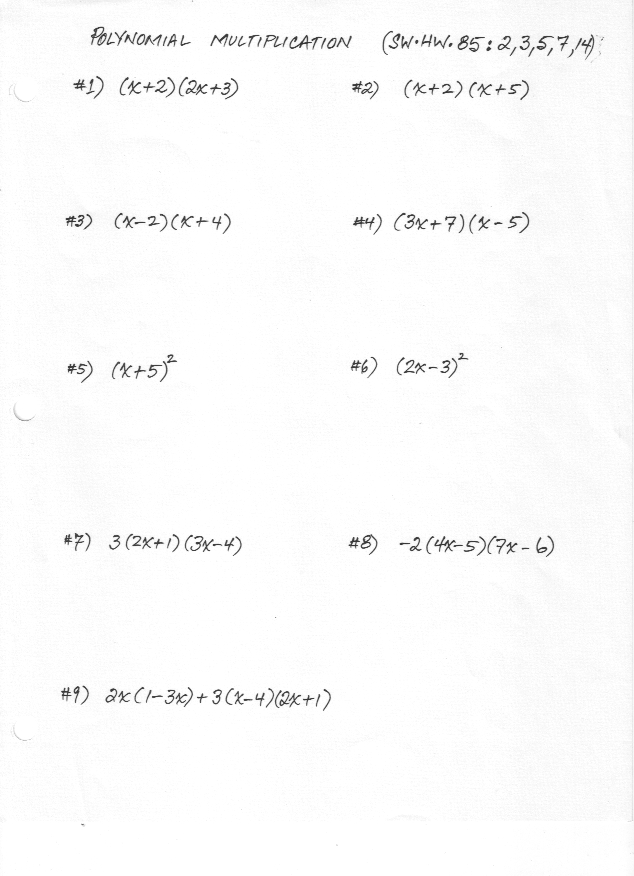 POLYNOMIAL MULTIPLICATION (SW•HW•85: 2,3,5,7,14)
#1) (x+2)(2x+3) #2) (x+2)(x+5)
#3) (x-2)(x+4) #4) (3x+7)(x-5)
#5) (x+5)² #6) (2x-3)²
#7) 3(2x+1)(3x-4) #8) -2(4x-5)(7x-6)
#9) 2x(1-3x)+3(x-4)(2x+1)